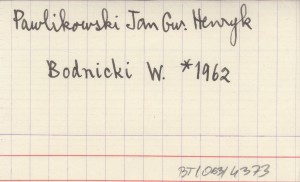 Pawlikowski Jan Gw. Henryk
Bodnicki W. *1962
BT/063/4373